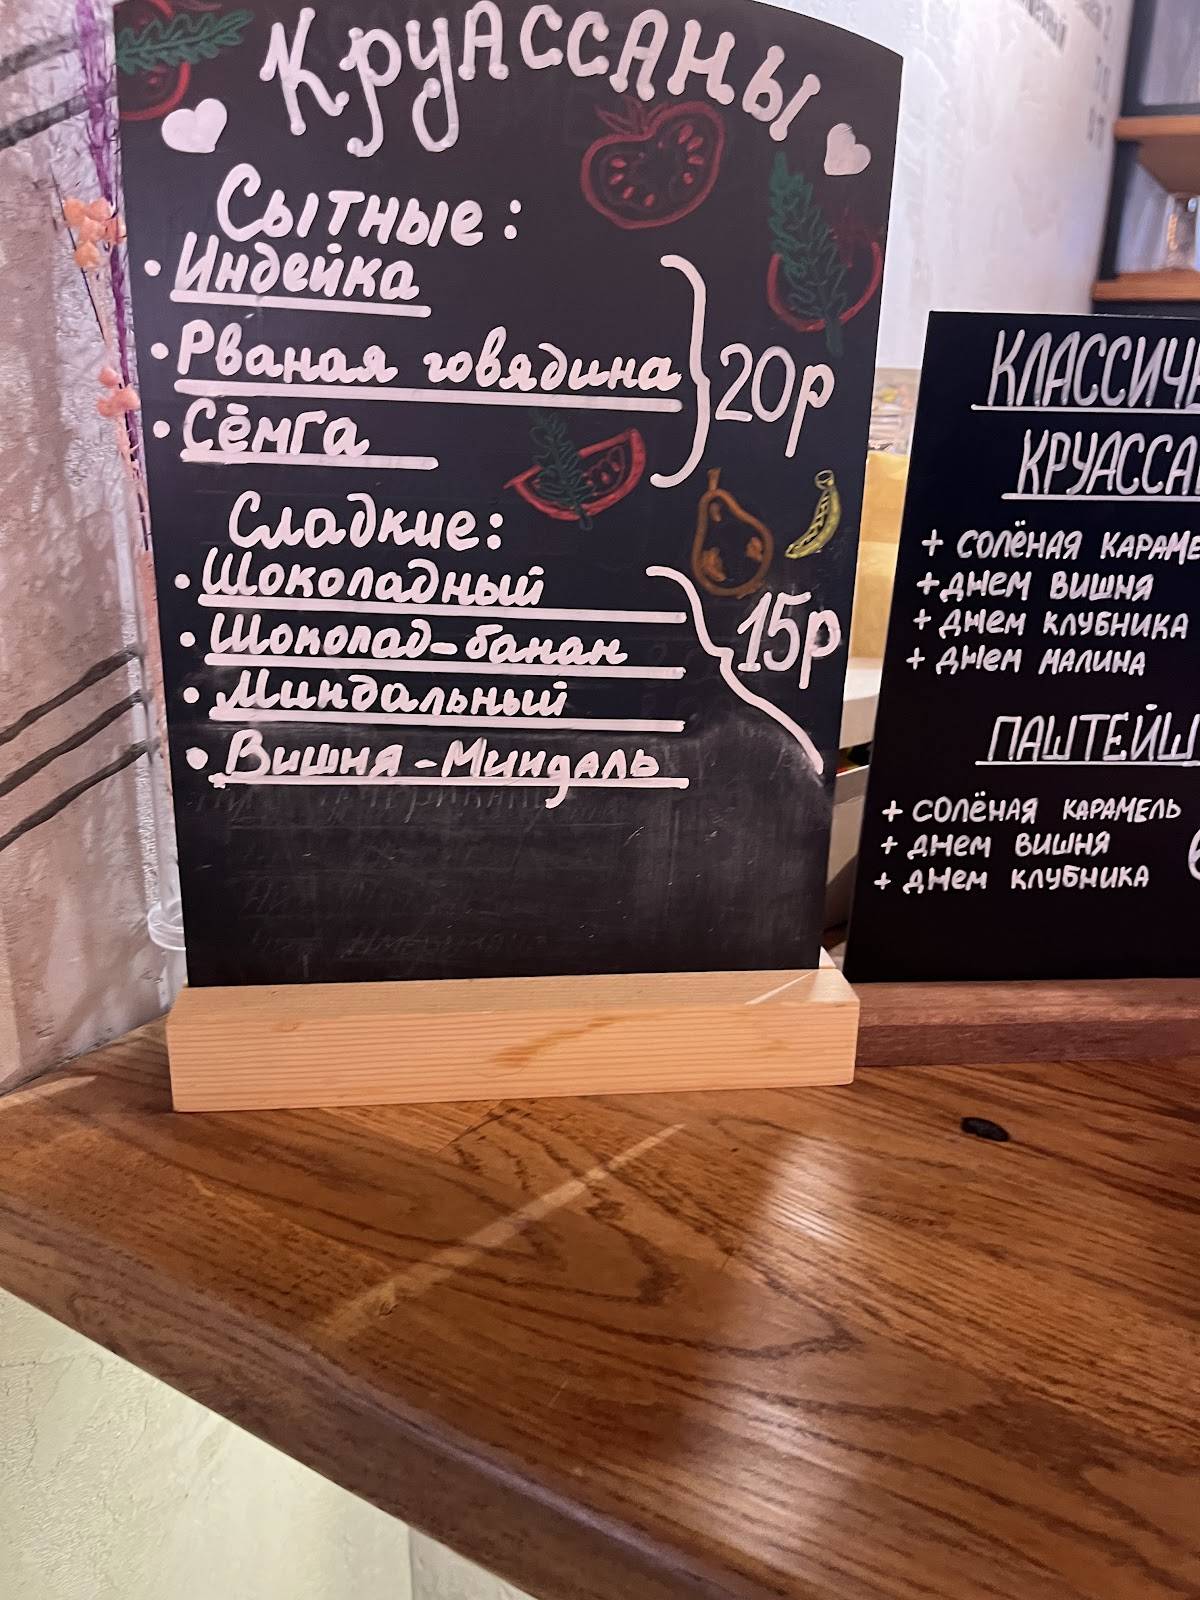 Круассаны
Сытные:
• Индейка
• Рваная говядина
• Сёмга
20р
Сладкие:
• Шоколадный
• Шоколад-банан
• Миндальный
• Вишня-Миндаль
15р
КЛАССИЧ
КРУАССА
+ СОЛЁНАЯ КАРАМЕ
+ ДЖЕМ ВИШНЯ
+ ДЖЕМ КЛУБНИКА
+ ДЖЕМ МАЛИНА
ПАШТЕЙШ
+ СОЛЁНАЯ КАРАМЕЛЬ
+ ДЖЕМ ВИШНЯ
+ ДЖЕМ КЛУБНИКА